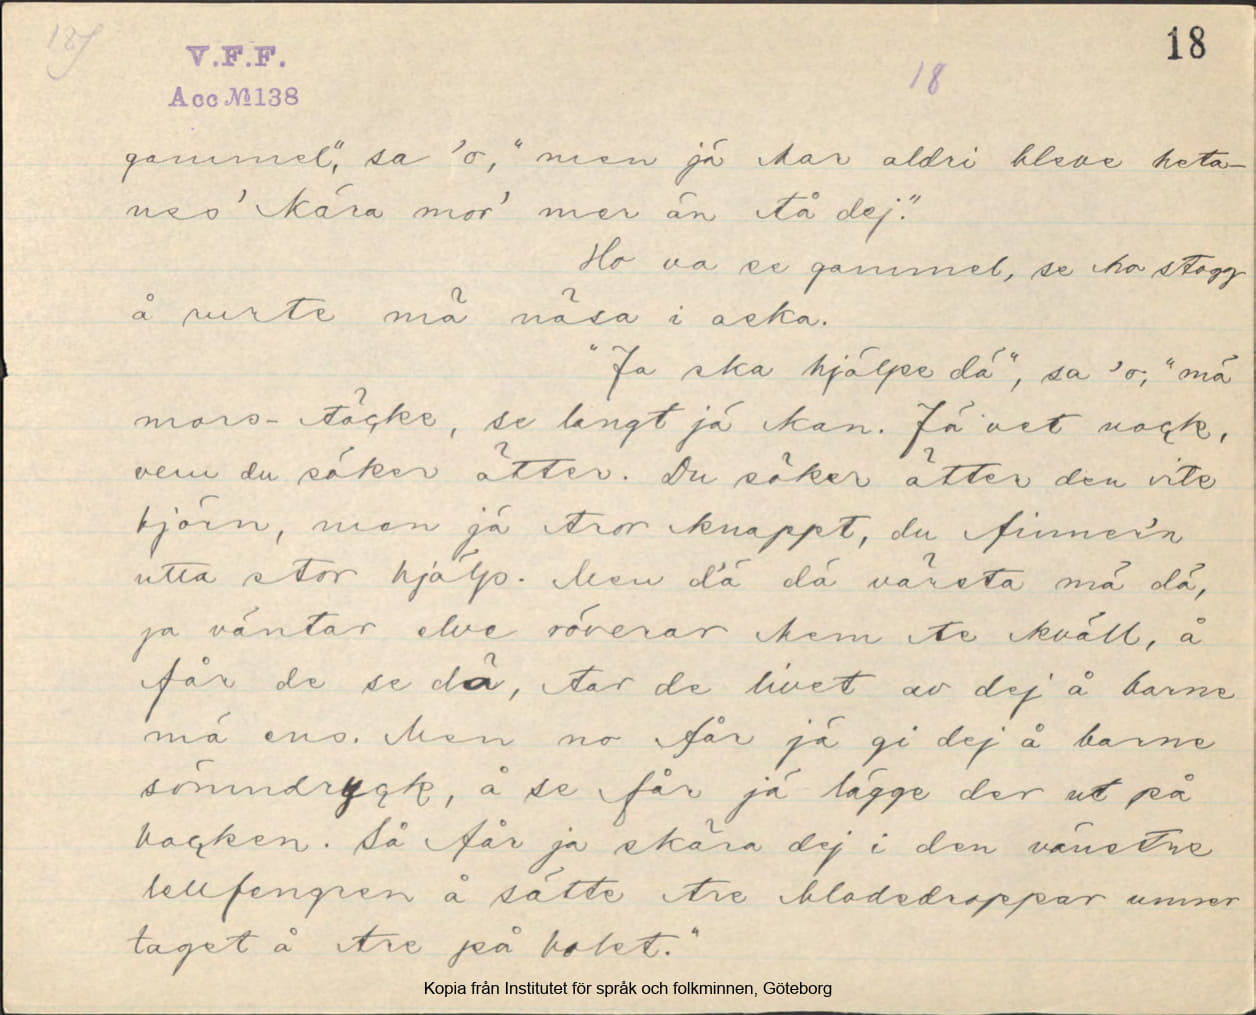 187
V.F.F.
Acc №138
18
18
gammel", sa 'o, "men já har aldri bleve heta-
nes 'Kára mor' mer án tå dej."
Ho va se gammel, se ho stogg
å rurte mä näsa i aska.
"Ja ska hjálpe dá", sa 'o, "má
mors-täçke, se langt já kan. Já vet voçk,
vem du sáker ätter. Du säker ätter den vite
bjórn, men já tror knappt, du finner'n
utta stor hjálp. Men d'á dá värsta má dá,
ja vántar elve róverar hem te kváll, å
får de se dä, tar de livet av dej å barne
má ens. Men no får já gi dej å barne
sómndryçk, å se får já lágge der ut på
baçken. Så får ja skära dej i den vánstre
lellfengren å sátte tre blodedroppar unner
taget å tre på bolet."
Kopia från Institutet för språk och folkminnen, Göteborg